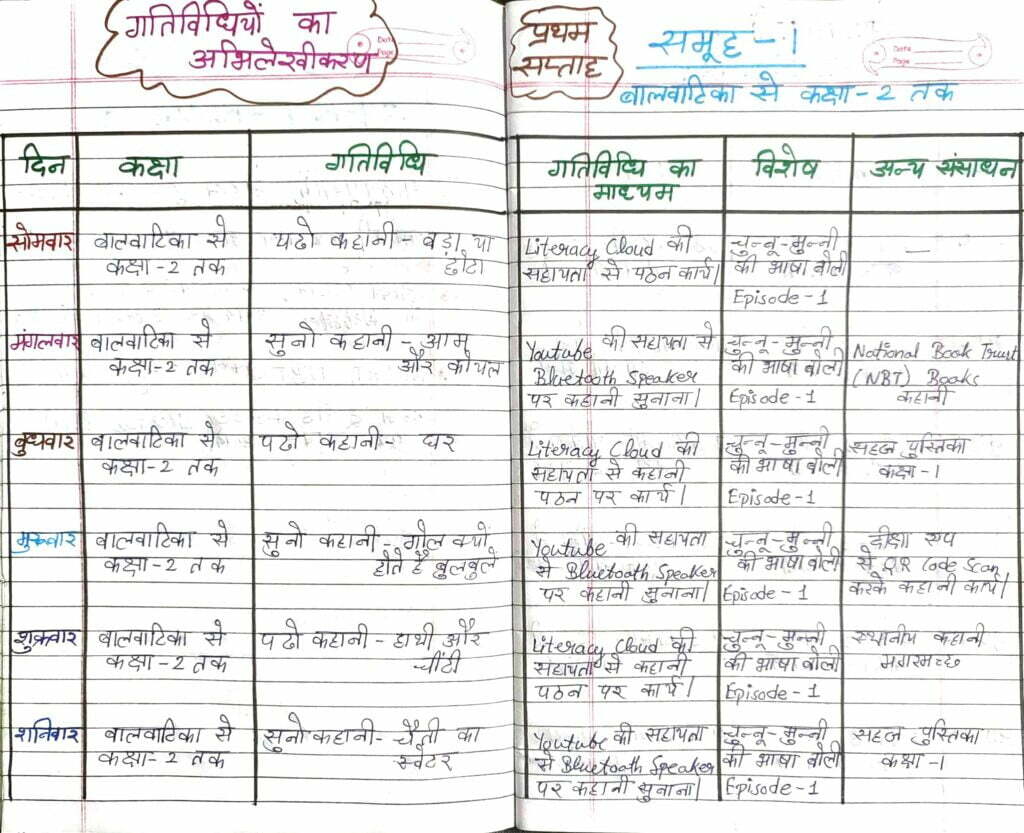 गतिविधियों का
अभिलेखीकरण
Date
Page
प्रथम
सप्ताह
समूह-1
Date
Page
बालवाटिका से कक्षा-2 तक
दिन कक्षा गतिविधि गतिविधि का माध्यम विशेष अन्य संसाधन
सोमवार
बालवाटिका से
कक्षा-2 तक
पढो कहानी - बड़ा या
छोटा
Literacy Cloud की
सहायता से पठन कार्य।
चुन्नू-मुन्नी
की भाषा बोली
Episode-1
—
मंगलवार
बालवाटिका से
कक्षा-2 तक
सुनो कहानी - आम
और कोयल
Youtube की सहायता से
Bluetooth Speaker
पर कहानी सुनाना।
चुन्नू-मुन्नी
की भाषा बोली
Episode-1
National Book Trust
(NBT) Books
कहानी
बुधवार
बालवाटिका से
कक्षा-2 तक
पढो कहानी - घर
Literacy Cloud की
सहायता से कहानी
पठन पर कार्य।
चुन्नू-मुन्नी
की भाषा बोली
Episode-1
सहज पुस्तिका
कक्षा-1
बालवाटिका से
कक्षा-2 तक
सुनो कहानी - गोल क्यो
होते है बुलबुले
Youtube की सहायता
से Bluetooth Speaker
पर कहानी सुनाना।
चुन्नू-मुन्नी
की भाषा बोली
Episode-1
दीक्षा एप
से QR Code Scan
करके कहानी कार्य।
शुक्रवार
बालवाटिका से
कक्षा-2 तक
पढो कहानी - हाथी और
चींटी
Literacy Cloud की
सहायता से कहानी
पठन पर कार्य।
चुन्नू-मुन्नी
की भाषा बोली
Episode-1
स्थानीय कहानी
मगरमच्छ
शनिवार
बालवाटिका से
कक्षा-2 तक
सुनो कहानी - चैती का
स्वेटर
Youtube की सहायता
से Bluetooth Speaker
पर कहानी सुनाना।
चुन्नू-मुन्नी
की भाषा बोली
Episode-1
सहज पुस्तिका
कक्षा-1